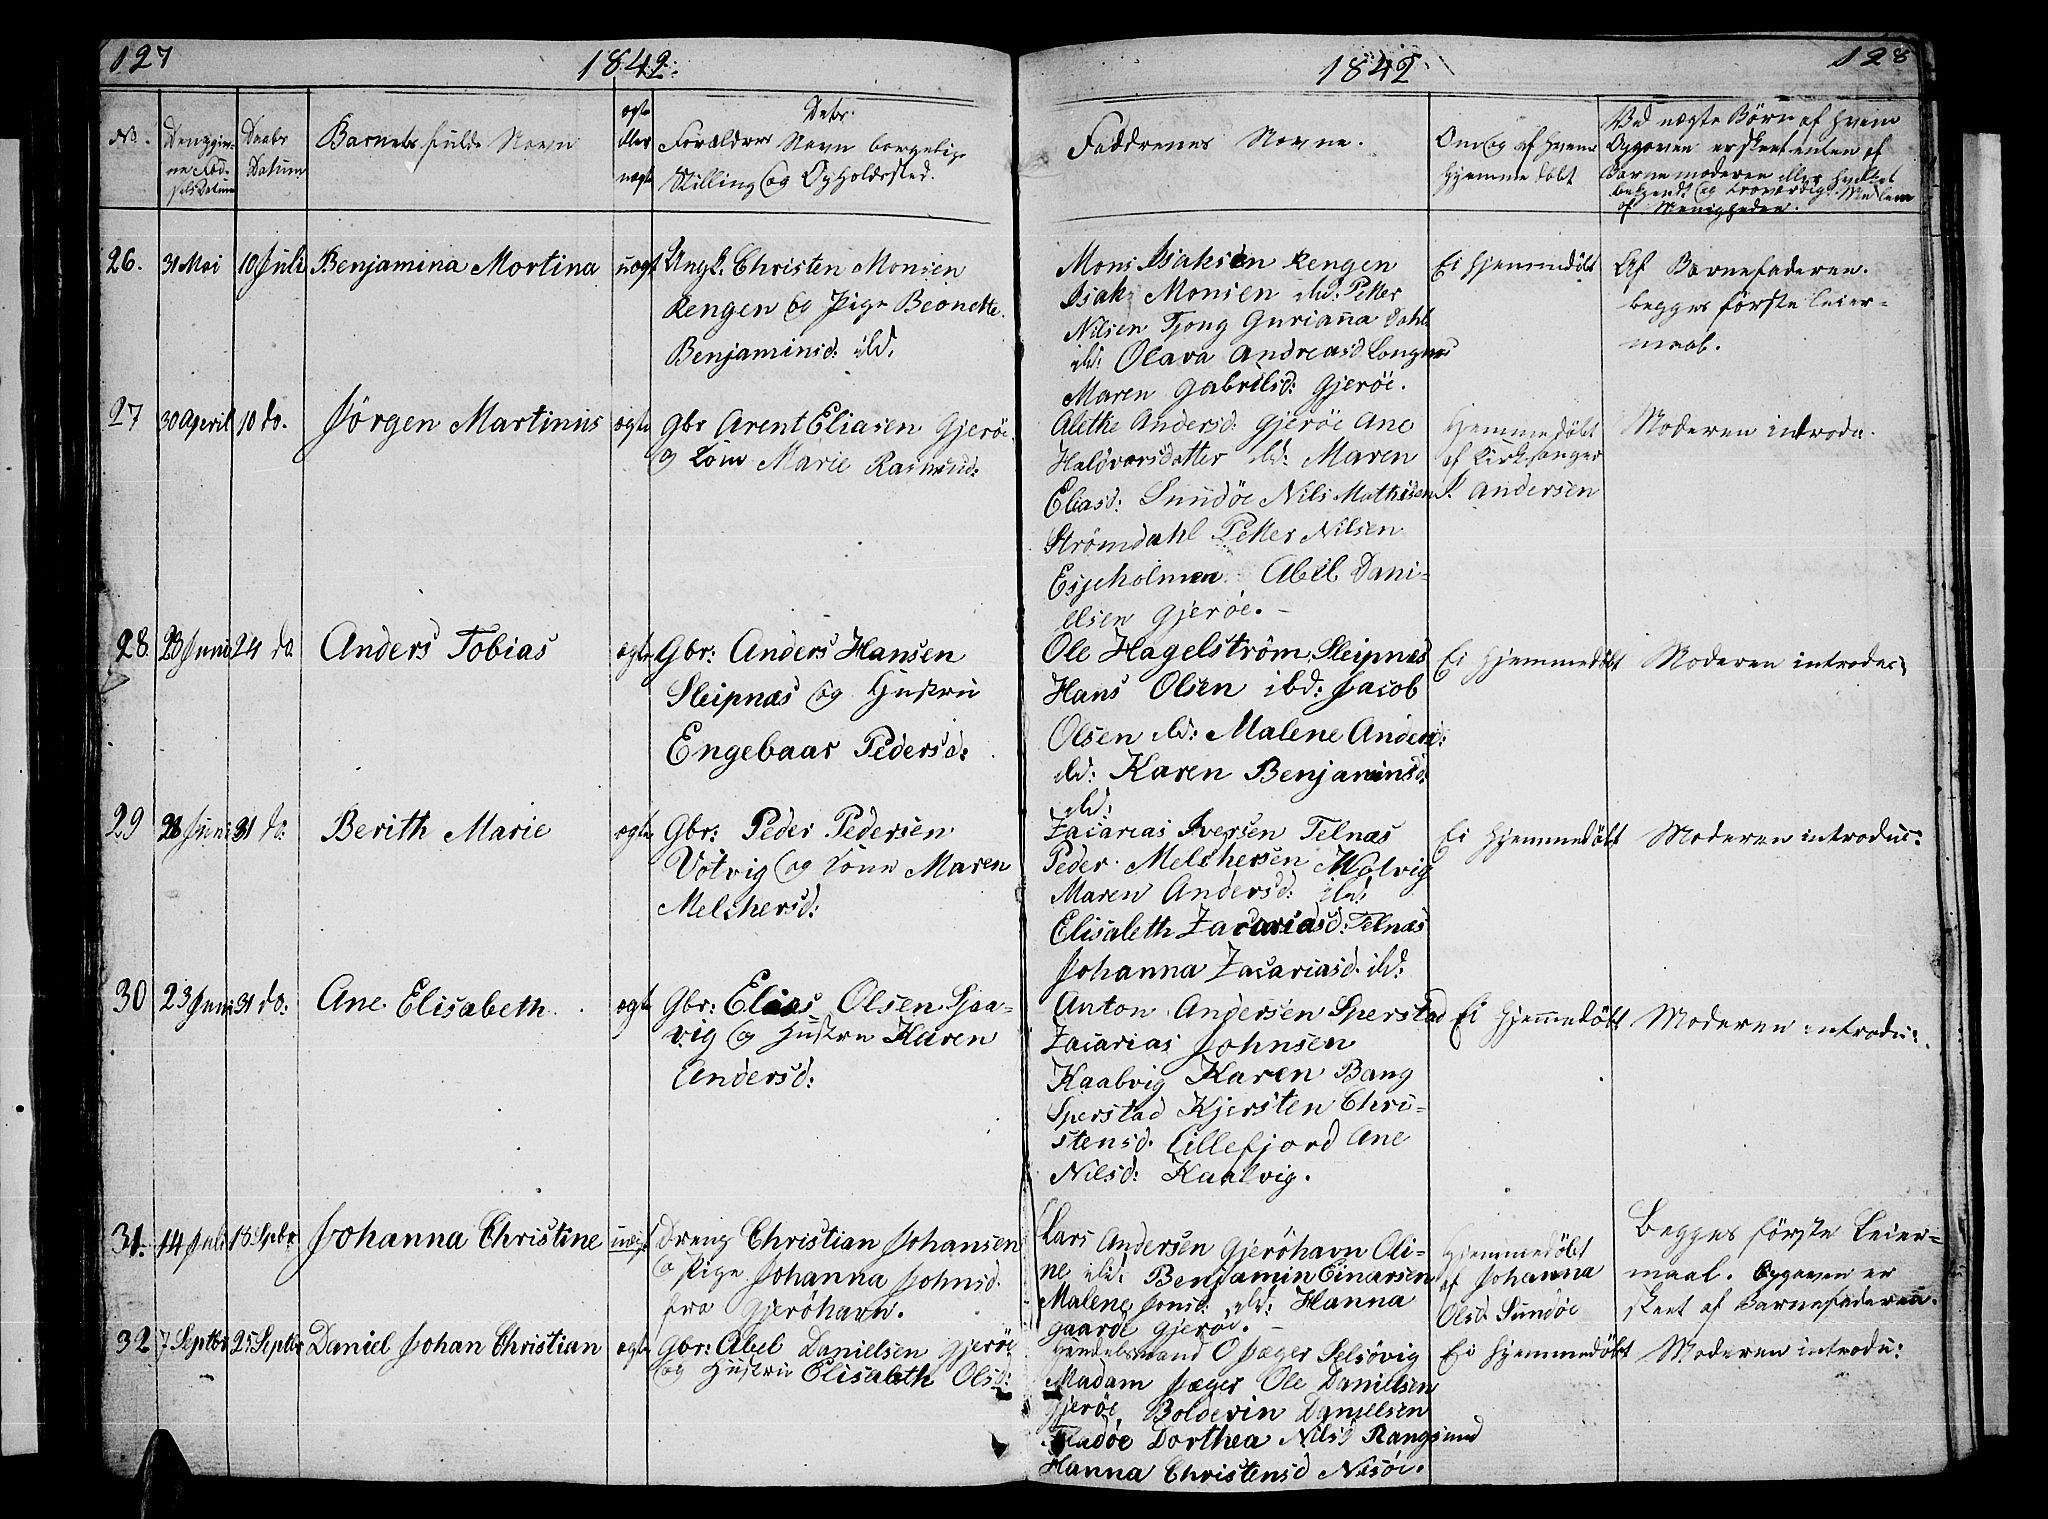 127
1842.
No.
Daabs
Datum
Barnets fulde Navn
ægte
eller
uægte
Dets
Forældres Navn borgelige
Stilling og Opholdssted.
26.
31 Mai
10 Juli
Benjamina Martina
uægt
Ungk. Christen Monsen
Rengen og Pige Beonette
Benjaminsd: ibd.
27
30 April
10 do.
Jörgen Martinus
ægte
Gbr Arent Eliasen Gjeröe
og Kone Marie Rasmusd:
28.
23 Juni
24 do
Anders Tobias
ægte
Gbr: Anders Hansen
Sleipnæs og Hustru
Engebaar Pedersd:
29
28 Juni
31 do:
Berith Marie
ægte
Gbr: Peder Pedersen
Votvig og Kone Maren
Melchersd:
30
23 Juni
31 do:
Ane Elisabeth
ægte
Gbr: Elias Olsen Sjaa-
vig og Hustru Karen
Andersd:
31.
14 Juli
18 Sptbr
Johanna Christine
uægt
Dreng Christian Johansen
og Pige Johanna Johnsd.
fra Gjeröhavn.
32
7 Septbr
25 Septbr
Daniel Johan Christian
ægte
Gbr: Abel Danielsen Gjeröe
og Hustru Elisabeth Olsd:
1842
128
Faddrenes Navne.
Om og af hvem
hjemmedöbt
Ved uægte Börn af hvem
Opgaven er skeet enten af
Barnemoderen eller hvilket
bekjendt og troværdigt Medlem
af Menigheden.
Mons Isaksen Rengen
Isak Monsen ibd: Petter
Nilsen Tjong Gurianna Dahl
ibd: Olava Andreasd Longnæs
Maren Gabrilsd: Gjeröe.
Ei hjemmedöbt
Af Barnefaderen.
begges förste leier-
maal.
Alethe Andersd. Gjeröe Ane
Haldvorsdatter ibd: Maren
Eliasd: Sundöe Nils Mathisen
Strömdahl Petter Nilsen
Esjeholmen Abel Dani-
elsen Gjeröe.-
Hjemmedöbt
af Kirkesanger
S. Andersen
Moderen introdu.
Ole Hagelström Sleipnæs
Hans Olsen ibd: Jacob
Olsen ibd: Malene Andersd:
ibd: Karen Benjaminsd:
ibd:
Ei hjemmedöbt
Moderen introduc:
Zacarias Iversen Telnæs
Peder Melchersen Motvig
Maren Andersd: ibd:
Elisabeth Zacariasd: Telnæs
Johanna Zacariasd. ibd:
Ei hjemmedöbt
Moderen introduc:
Anton Andersen Sperstad
Zacarias Johnsen
Kaalvig Karen Bang
Sperstad Kjersten Chri-
stensd. Lillefjord Ane
Nilsd: Kaalvig.
Ei hjemmedöbt
Moderen introdu:
Lars Andersen Gjeröhavn Oli-
ne ibd. Benjamin Einarsen
Malene Jonsd: ibd: Hanna
Gaarde Gjeröe.-
Hjemmedöbt
af Johanna
Olsd. Sundöe
Begges förste Leier-
maal. Opgaven er
skeet af Barnefaderen.
Handelsmand O Jæger Selsövig
Madam Jæger Ole Danielsen
Gjeröe Boldevin Danielsen
Dorthea Nilsd Rangsund
Hanna Christensd Nesöe.
Ei hjemmedöbt
Moderen introdu: